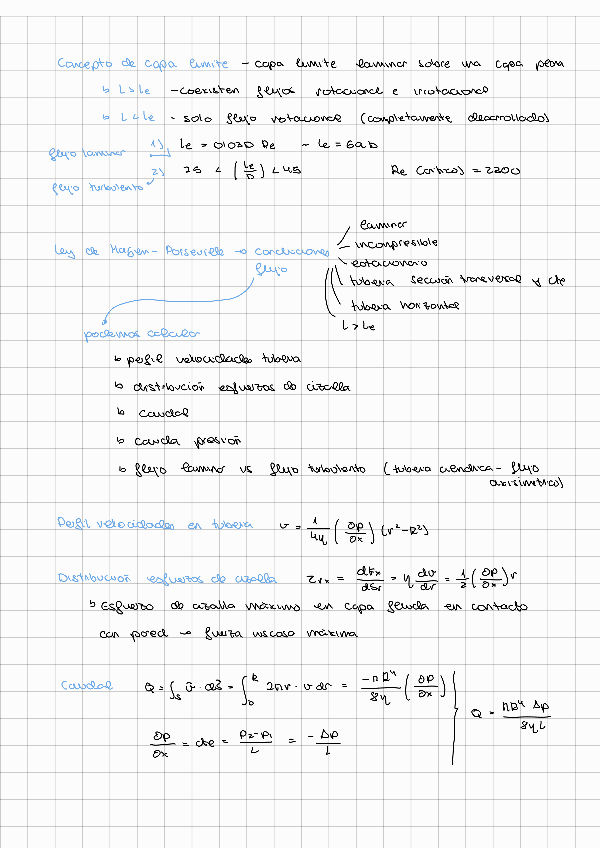 Concepto de capa limite - capa limite laminar sobre una capa plana
↳ L > Le - coexisten flujos rotacional e irrotacional
↳ L < Le - solo flujo rotacional (completamente desarrollado)
flujo laminar 1) Le = 0'03D Re ~ Le = 60D
flujo turbulento 2) 25 < (Le/D) < 45 Re (crítico) = 2200
Ley de Hagen-Poiseuille → condiciones flujo
laminar
incompresible
estacionario
tubería sección transversal y cte
tubería horizontal
L > Le
podemos calcular
↳ perfil velocidades tubería
↳ distribución esfuerzos de cizalla
↳ caudal
↳ caída presión
↳ flujo laminar vs flujo turbulento (tubería cilíndrica - flujo
axisimétrico)
Perfil velocidades en tubería v = 1/4η (∂p/∂x) (r² - R²)
Distribución esfuerzos de cizalla τrx = dFx/dSr = η dv/dr = 1/2 (∂p/∂x) r
↳ Esfuerzo de cizalla máximo en capa fluida en contacto
con pared → fuerza viscosa máxima
Caudal Q = ∫s v̄ · ds̄ = ∫₀ᴿ 2πr · v dr = -πR⁴/8η (∂p/∂x)
∂p/∂x = cte = p₂-p₁/L = -Δp/L
Q = πR⁴ Δp/8ηL